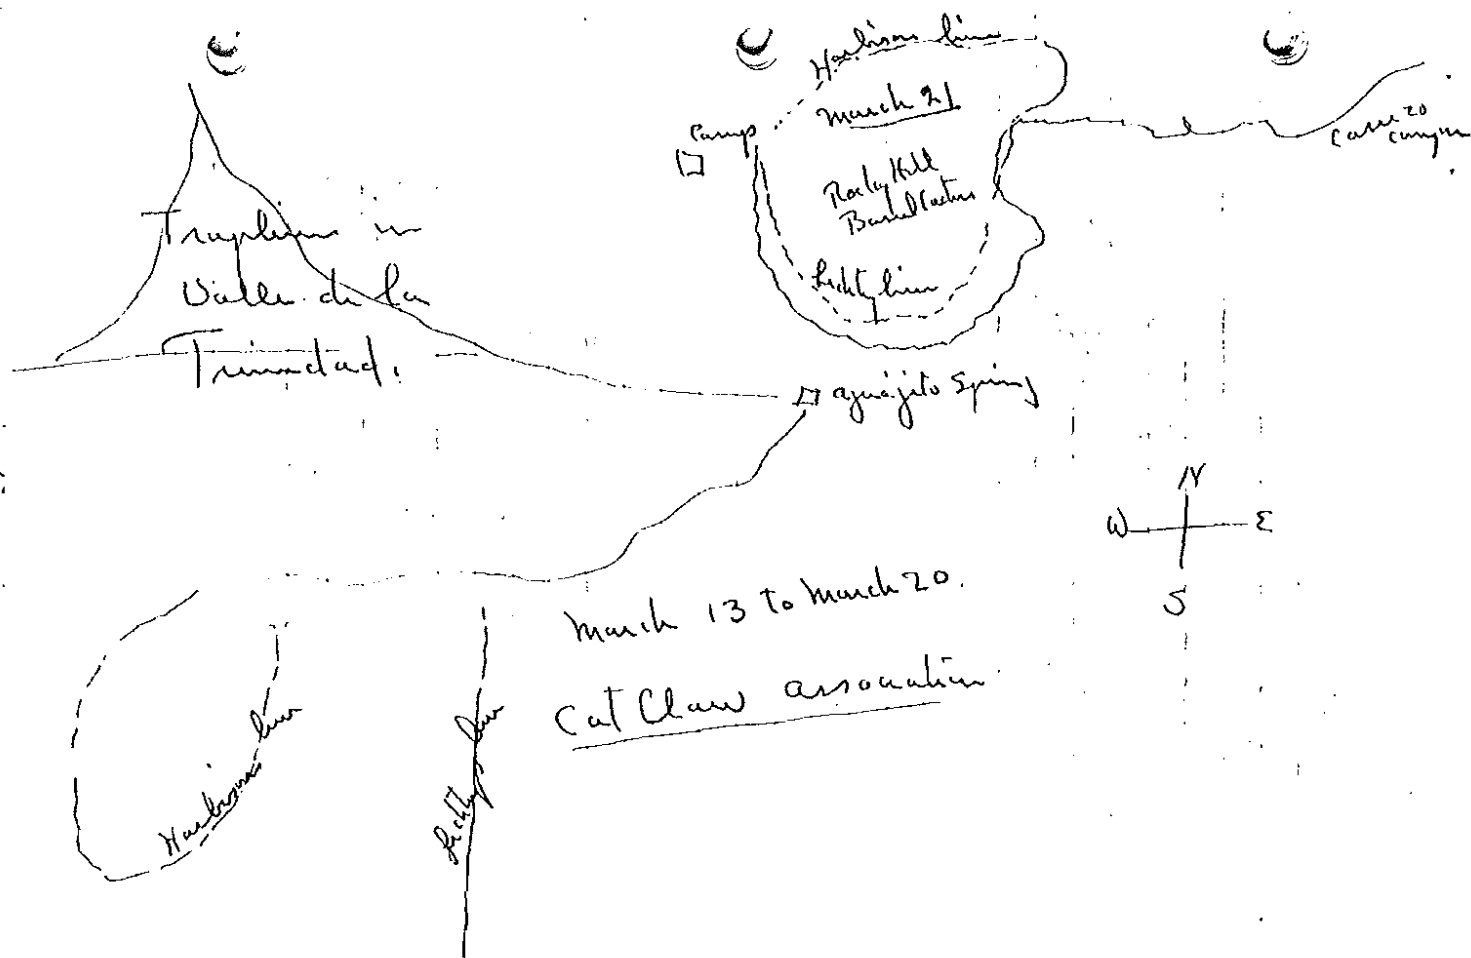 Harbison line
March 21
Camp
Rocky Hill
Barrel Cactus
Lichty line
Canyon
Trapline in
Valle de la
Trinidad.
aguajito Spring
N
W E
S
March 13 to March 20.
Cat Claw association
Harbison line
Lichty line